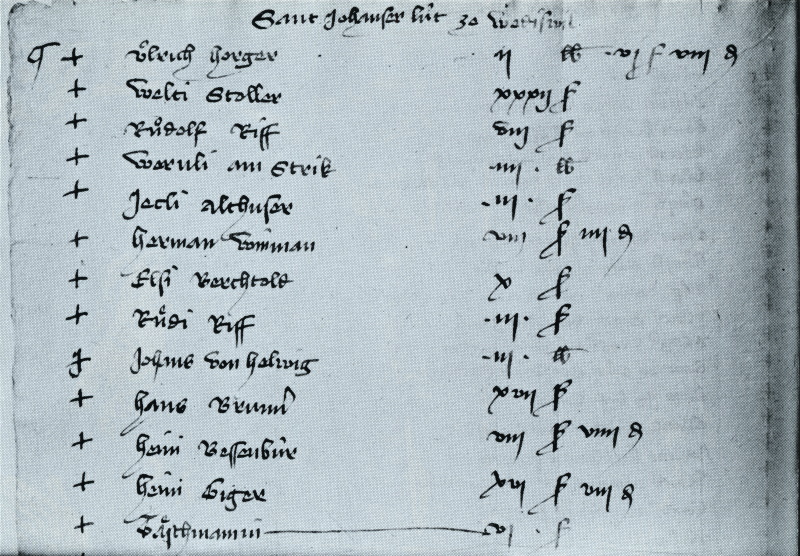 Sant Johanser lút ze Wediswil
¶ + Ůlrich Horger ii lb vi ſ viii d
+ Welti Stoller xxxii ſ
+ Růdolf Riff viii ſ
+ Weruli am Strik iiii lb
+ Jecli Althuser iii ſ
+ Herman viii ſ iiii d
+ Elsi Berchtold x ſ
+ Růdi Riff iii ſ
+ Johans von Helwig iii lb
+ Hans Brunner xvii ſ
+ Heini Bessenbúr viii ſ viiii d
+ Heini Giger xvi ſ viii d
+ vi ſ